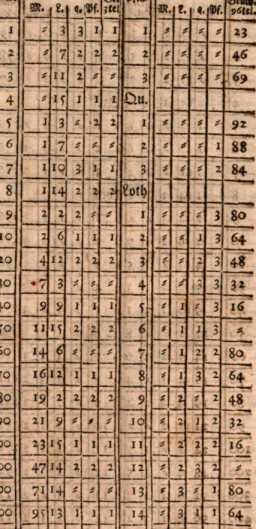 M. L. q. Pf. ztel. M. L. q. Pf. 96tel.
1 ⸗ 3 3 1 1 1 ⸗ ⸗ ⸗ ⸗ 23
2 ⸗ 7 2 2 2 2 ⸗ ⸗ ⸗ ⸗ 46
3 ⸗ 11 2 ⸗ ⸗ 3 ⸗ ⸗ ⸗ ⸗ 69
4 ⸗ 15 1 1 1 Qu.
5 1 3 ⸗ 2 2 1 ⸗ ⸗ ⸗ ⸗ 92
6 1 7 ⸗ ⸗ ⸗ 2 ⸗ ⸗ ⸗ 1 88
7 1 10 3 1 1 3 ⸗ ⸗ ⸗ 2 84
8 1 14 2 2 2 Loth
9 2 2 2 ⸗ ⸗ 1 ⸗ ⸗ ⸗ 3 80
10 2 6 1 1 1 2 ⸗ ⸗ 1 3 64
20 4 12 2 2 2 3 ⸗ ⸗ 2 3 48
30 7 3 ⸗ ⸗ ⸗ 4 ⸗ ⸗ 3 3 32
40 9 9 1 1 1 5 ⸗ 1 ⸗ 3 16
50 11 15 2 2 2 6 ⸗ 1 1 3 ⸗
60 14 6 ⸗ ⸗ ⸗ 7 ⸗ 1 2 2 80
70 16 12 1 1 1 8 ⸗ 1 3 2 64
80 19 2 2 2 2 9 ⸗ 2 ⸗ 2 48
90 21 9 ⸗ ⸗ ⸗ 10 ⸗ 2 1 2 32
00 23 15 1 1 1 11 ⸗ 2 2 2 16
00 47 14 2 2 2 12 ⸗ 2 3 2 ⸗
00 71 14 ⸗ ⸗ ⸗ 13 ⸗ 3 ⸗ 1 80
00 95 13 1 1 1 14 ⸗ 3 1 1 64